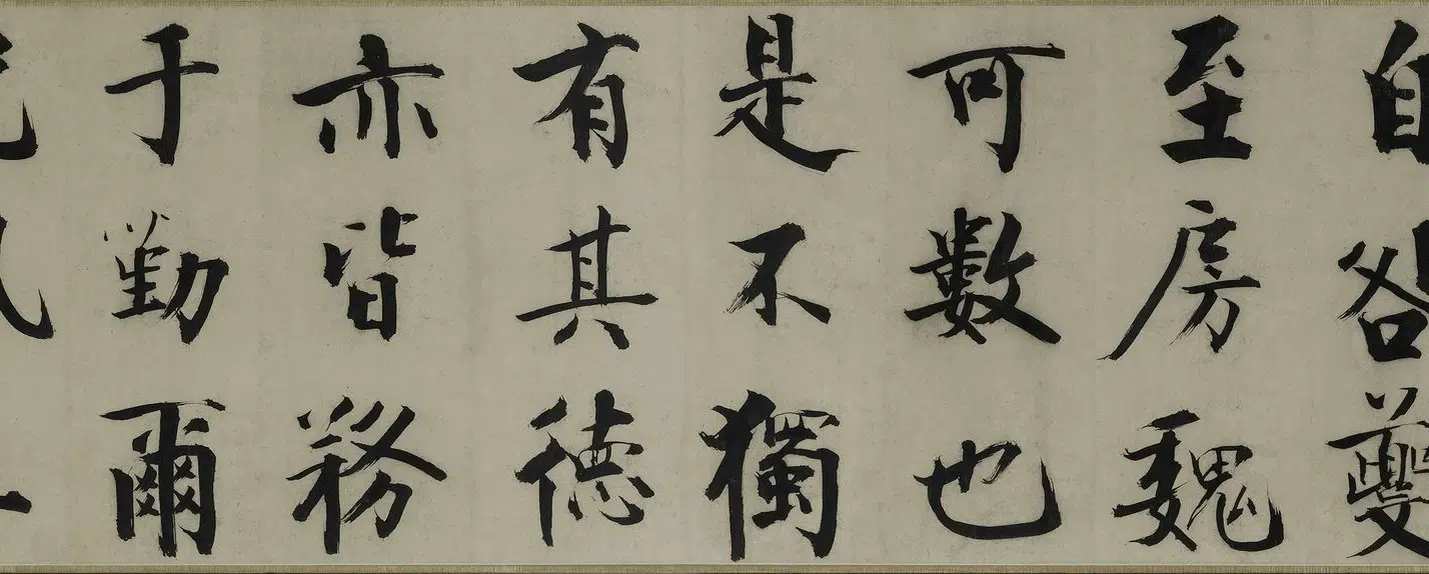 自咎夔
至房魏
可數也
是不獨
有其德
亦皆務
于勤爾